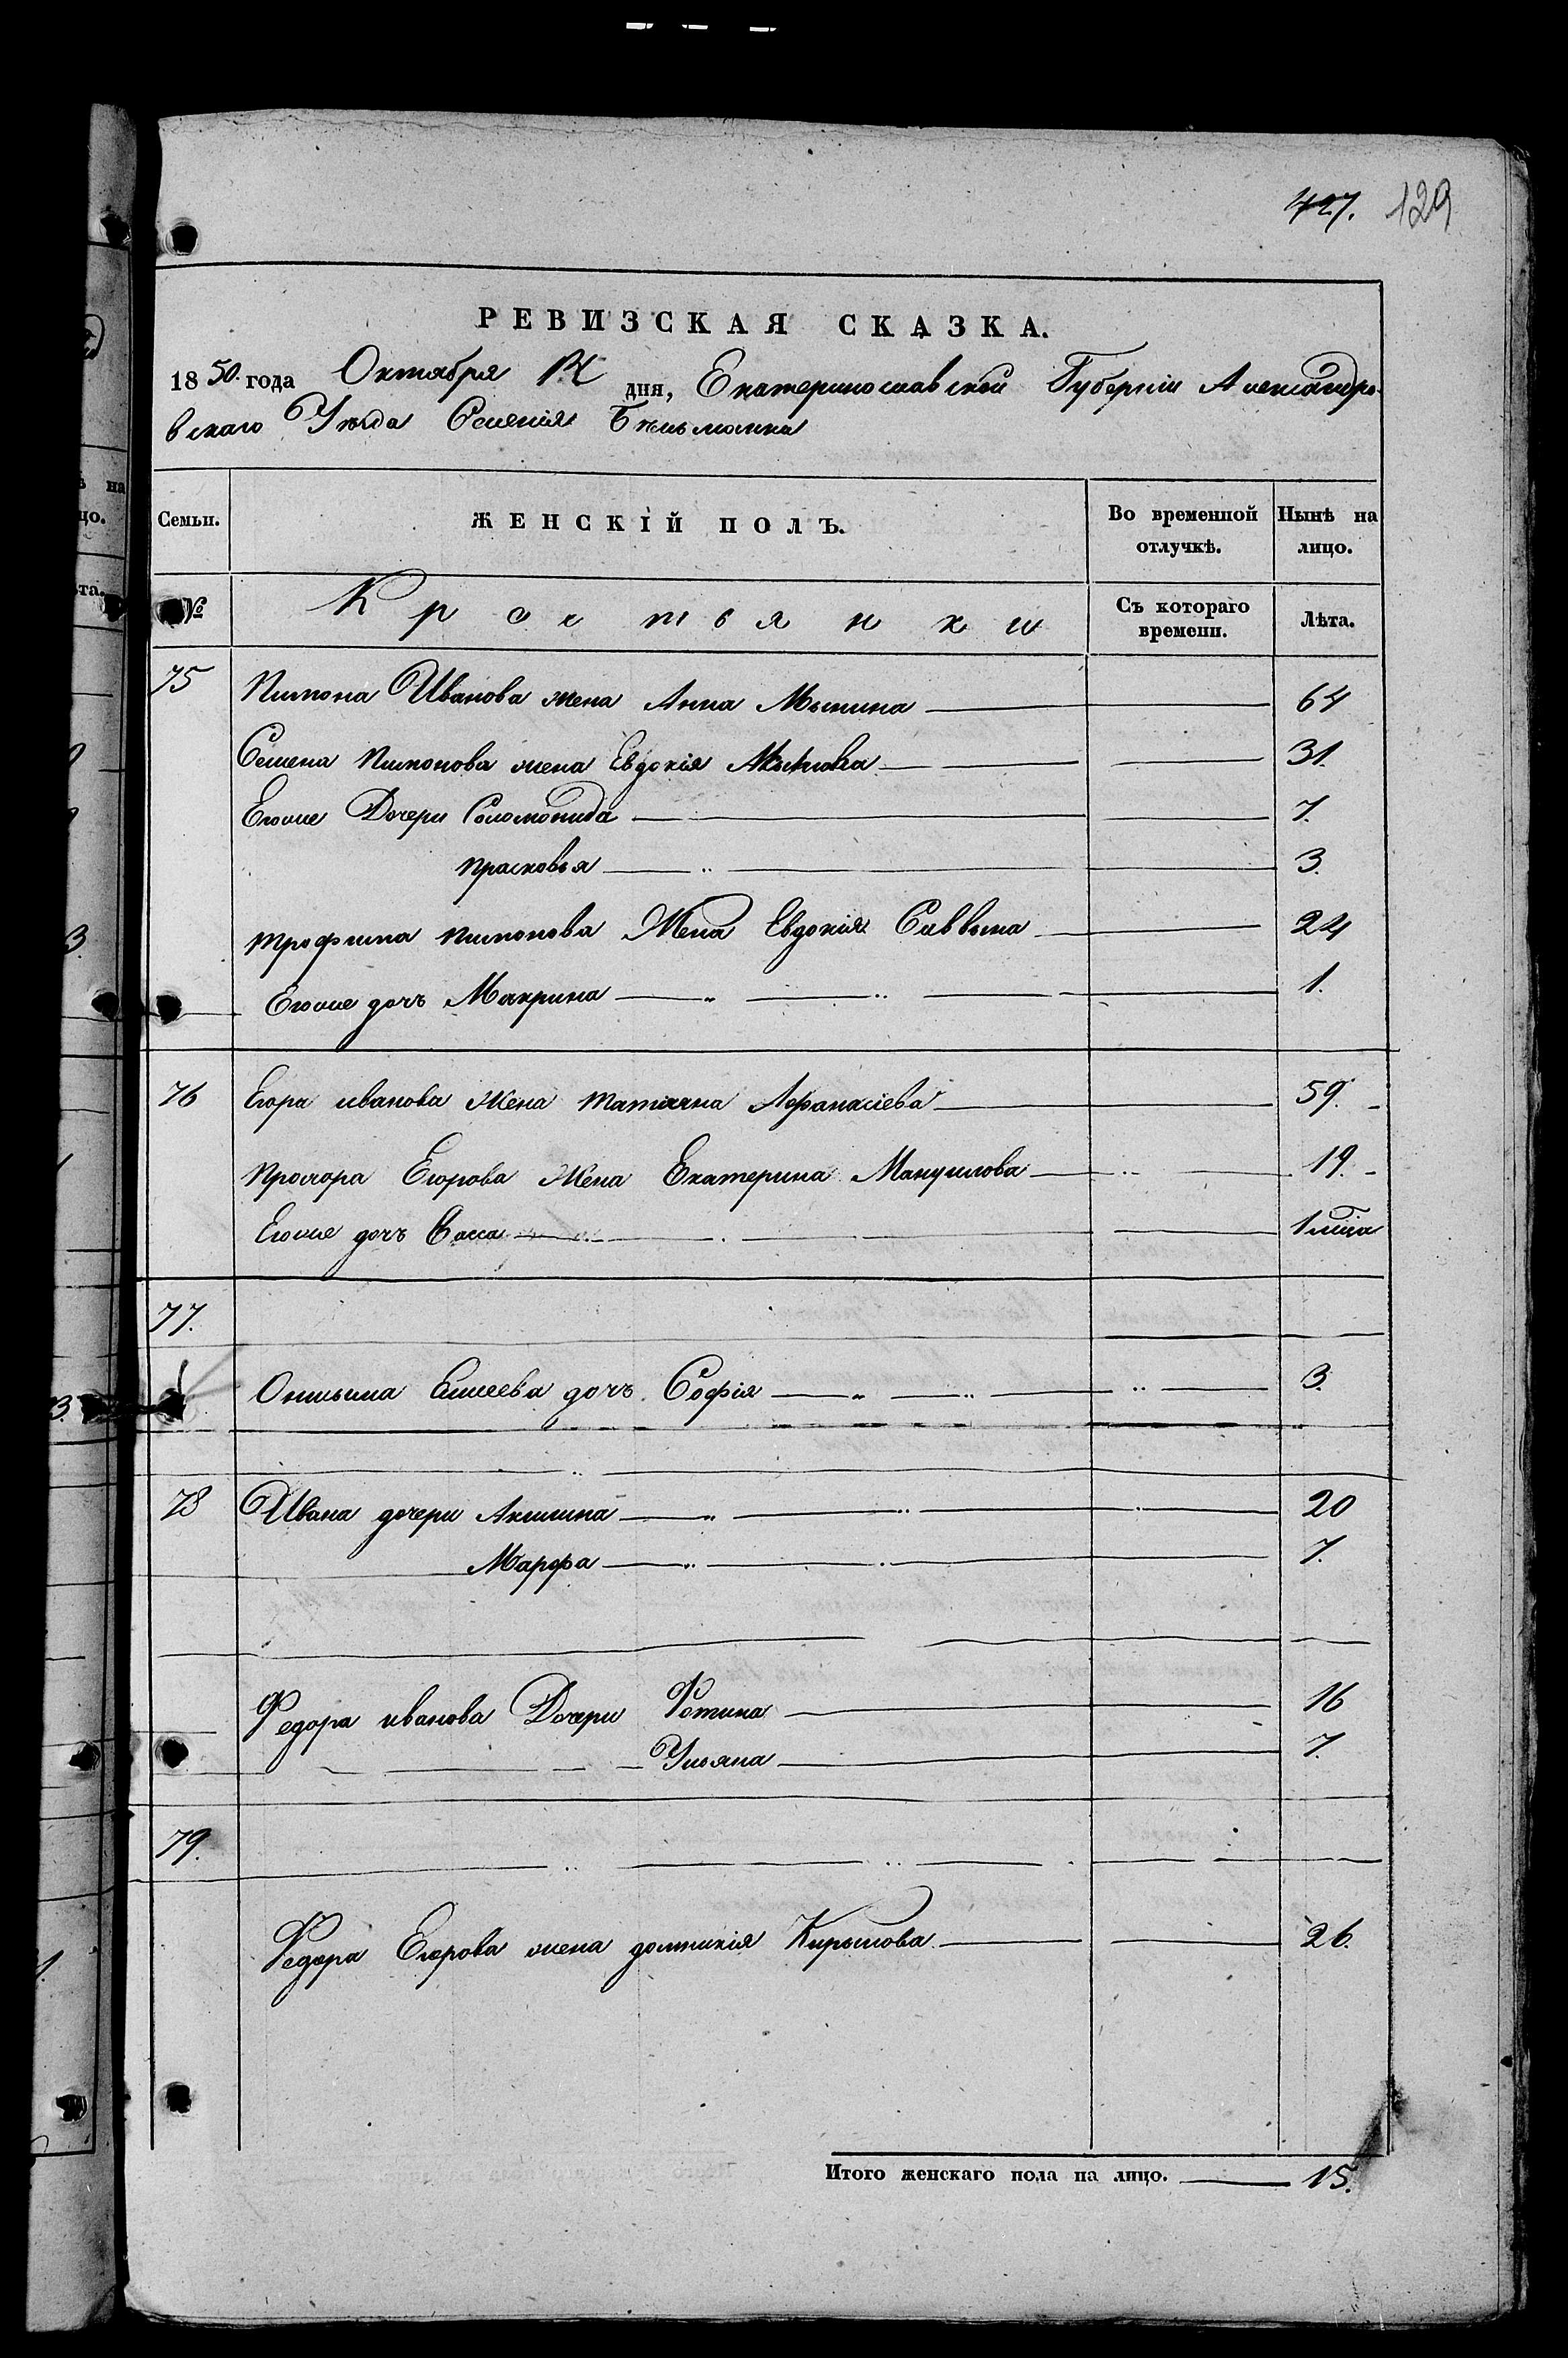 427. 129
РЕВИЗСКАЯ СКАЗКА.
1850 года Октября дня, Екатеринославской Губерніи Александро-
вскаго Уезда Селенія Бельманки
Семьи. ЖЕНСКІЙ ПОЛЪ. Во временной отлучкѣ. Нынѣ на лицо.
№ Крестьянки Съ котораго времени. Лѣта.
75 Пимона Иванова жена Анна Мынина 64
Семена Пимонова жена Евдокія 31.
Егоже Дочери Соломонида 7.
Прасковья 3.
Трофима Пимонова Жена Евдокія Саввына 24
Егоже дочъ Макрина 1.
76 Егора иванова Жена Татіяна Афанасіева 59.
Прохора Егорова Жена Екатерина Мануилова 19.
Егоже дочъ Васса 1 мца
77.
Онисима Елисеева дочъ Софія 3.
78 Ивана дочери Акилина 20
Марфа 7.
Федора иванова Дочери Фотина 16
Ульяна 7.
79.
Федора Егорова жена домникія Кирылова 26.
Итого женскаго пола на лицо. 15.